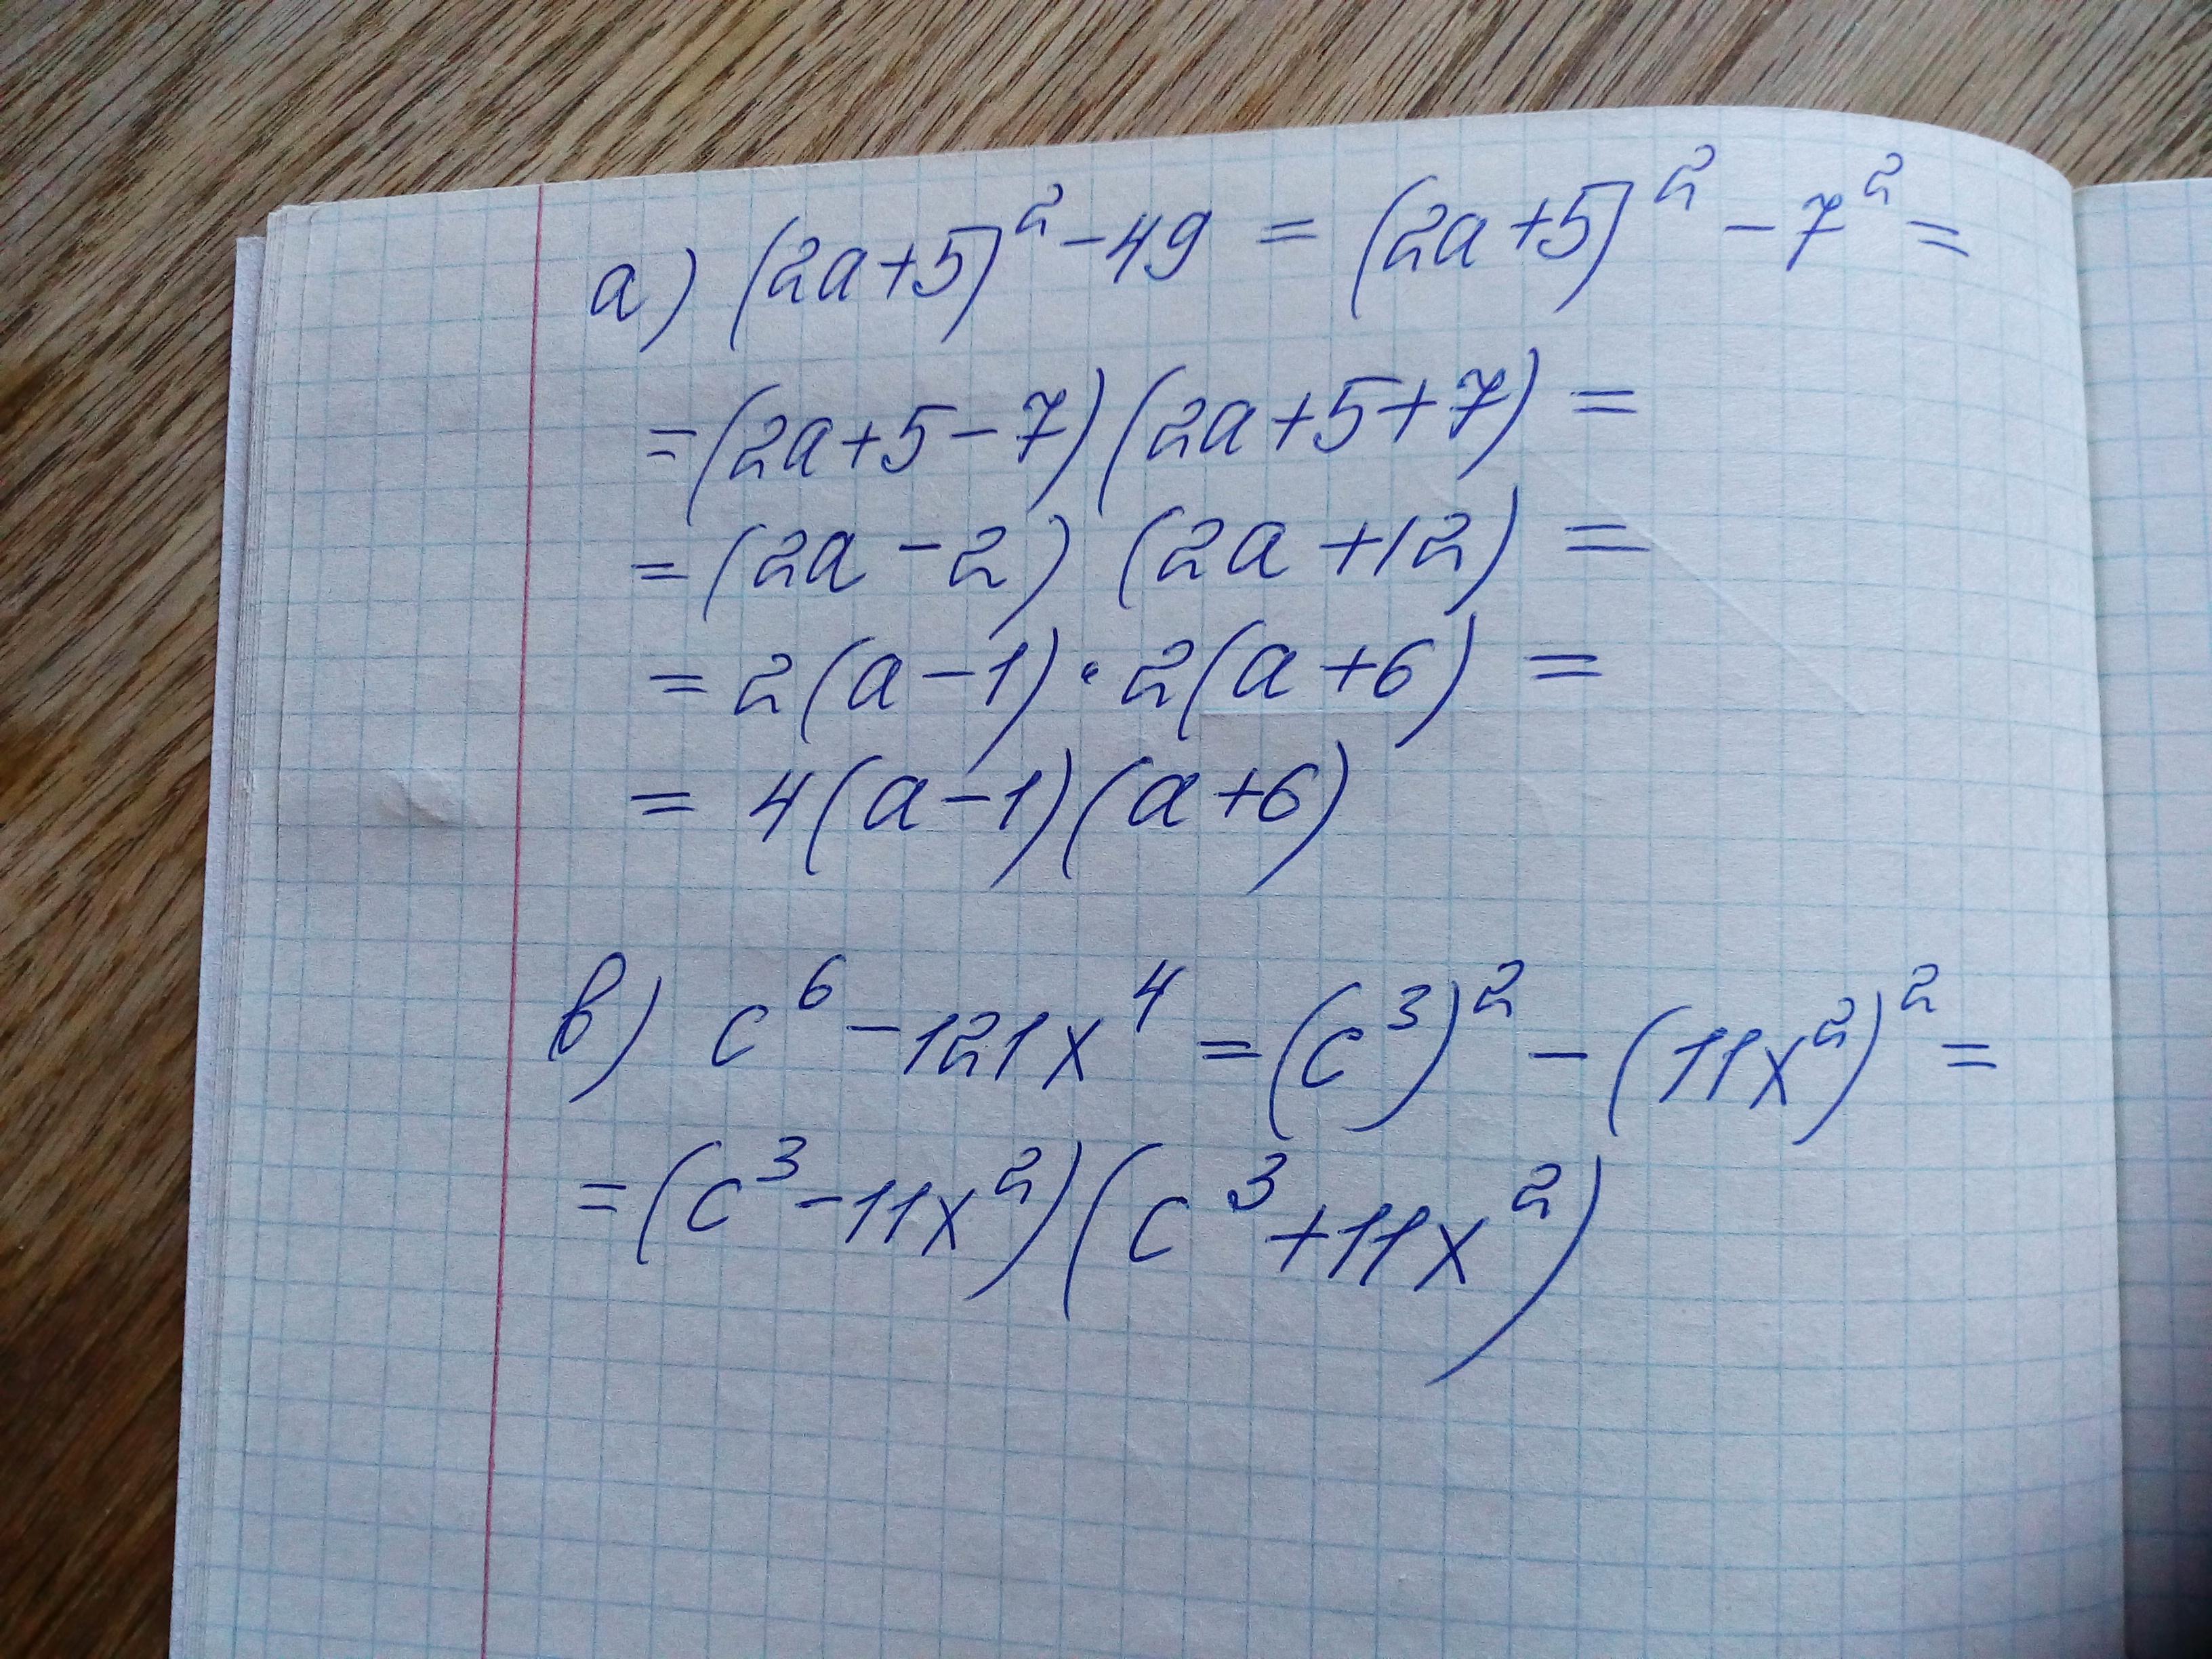 а) (2a+5)² - 49 = (2a+5)² - 7² =
= (2a+5-7)(2a+5+7) =
= (2a-2) (2a+12) =
= 2(a-1)·2(a+6) =
= 4(a-1)(a+6)
в) c⁶ - 121x⁴ = (c³)² - (11x²)² =
= (c³ - 11x²)(c³ + 11x²)